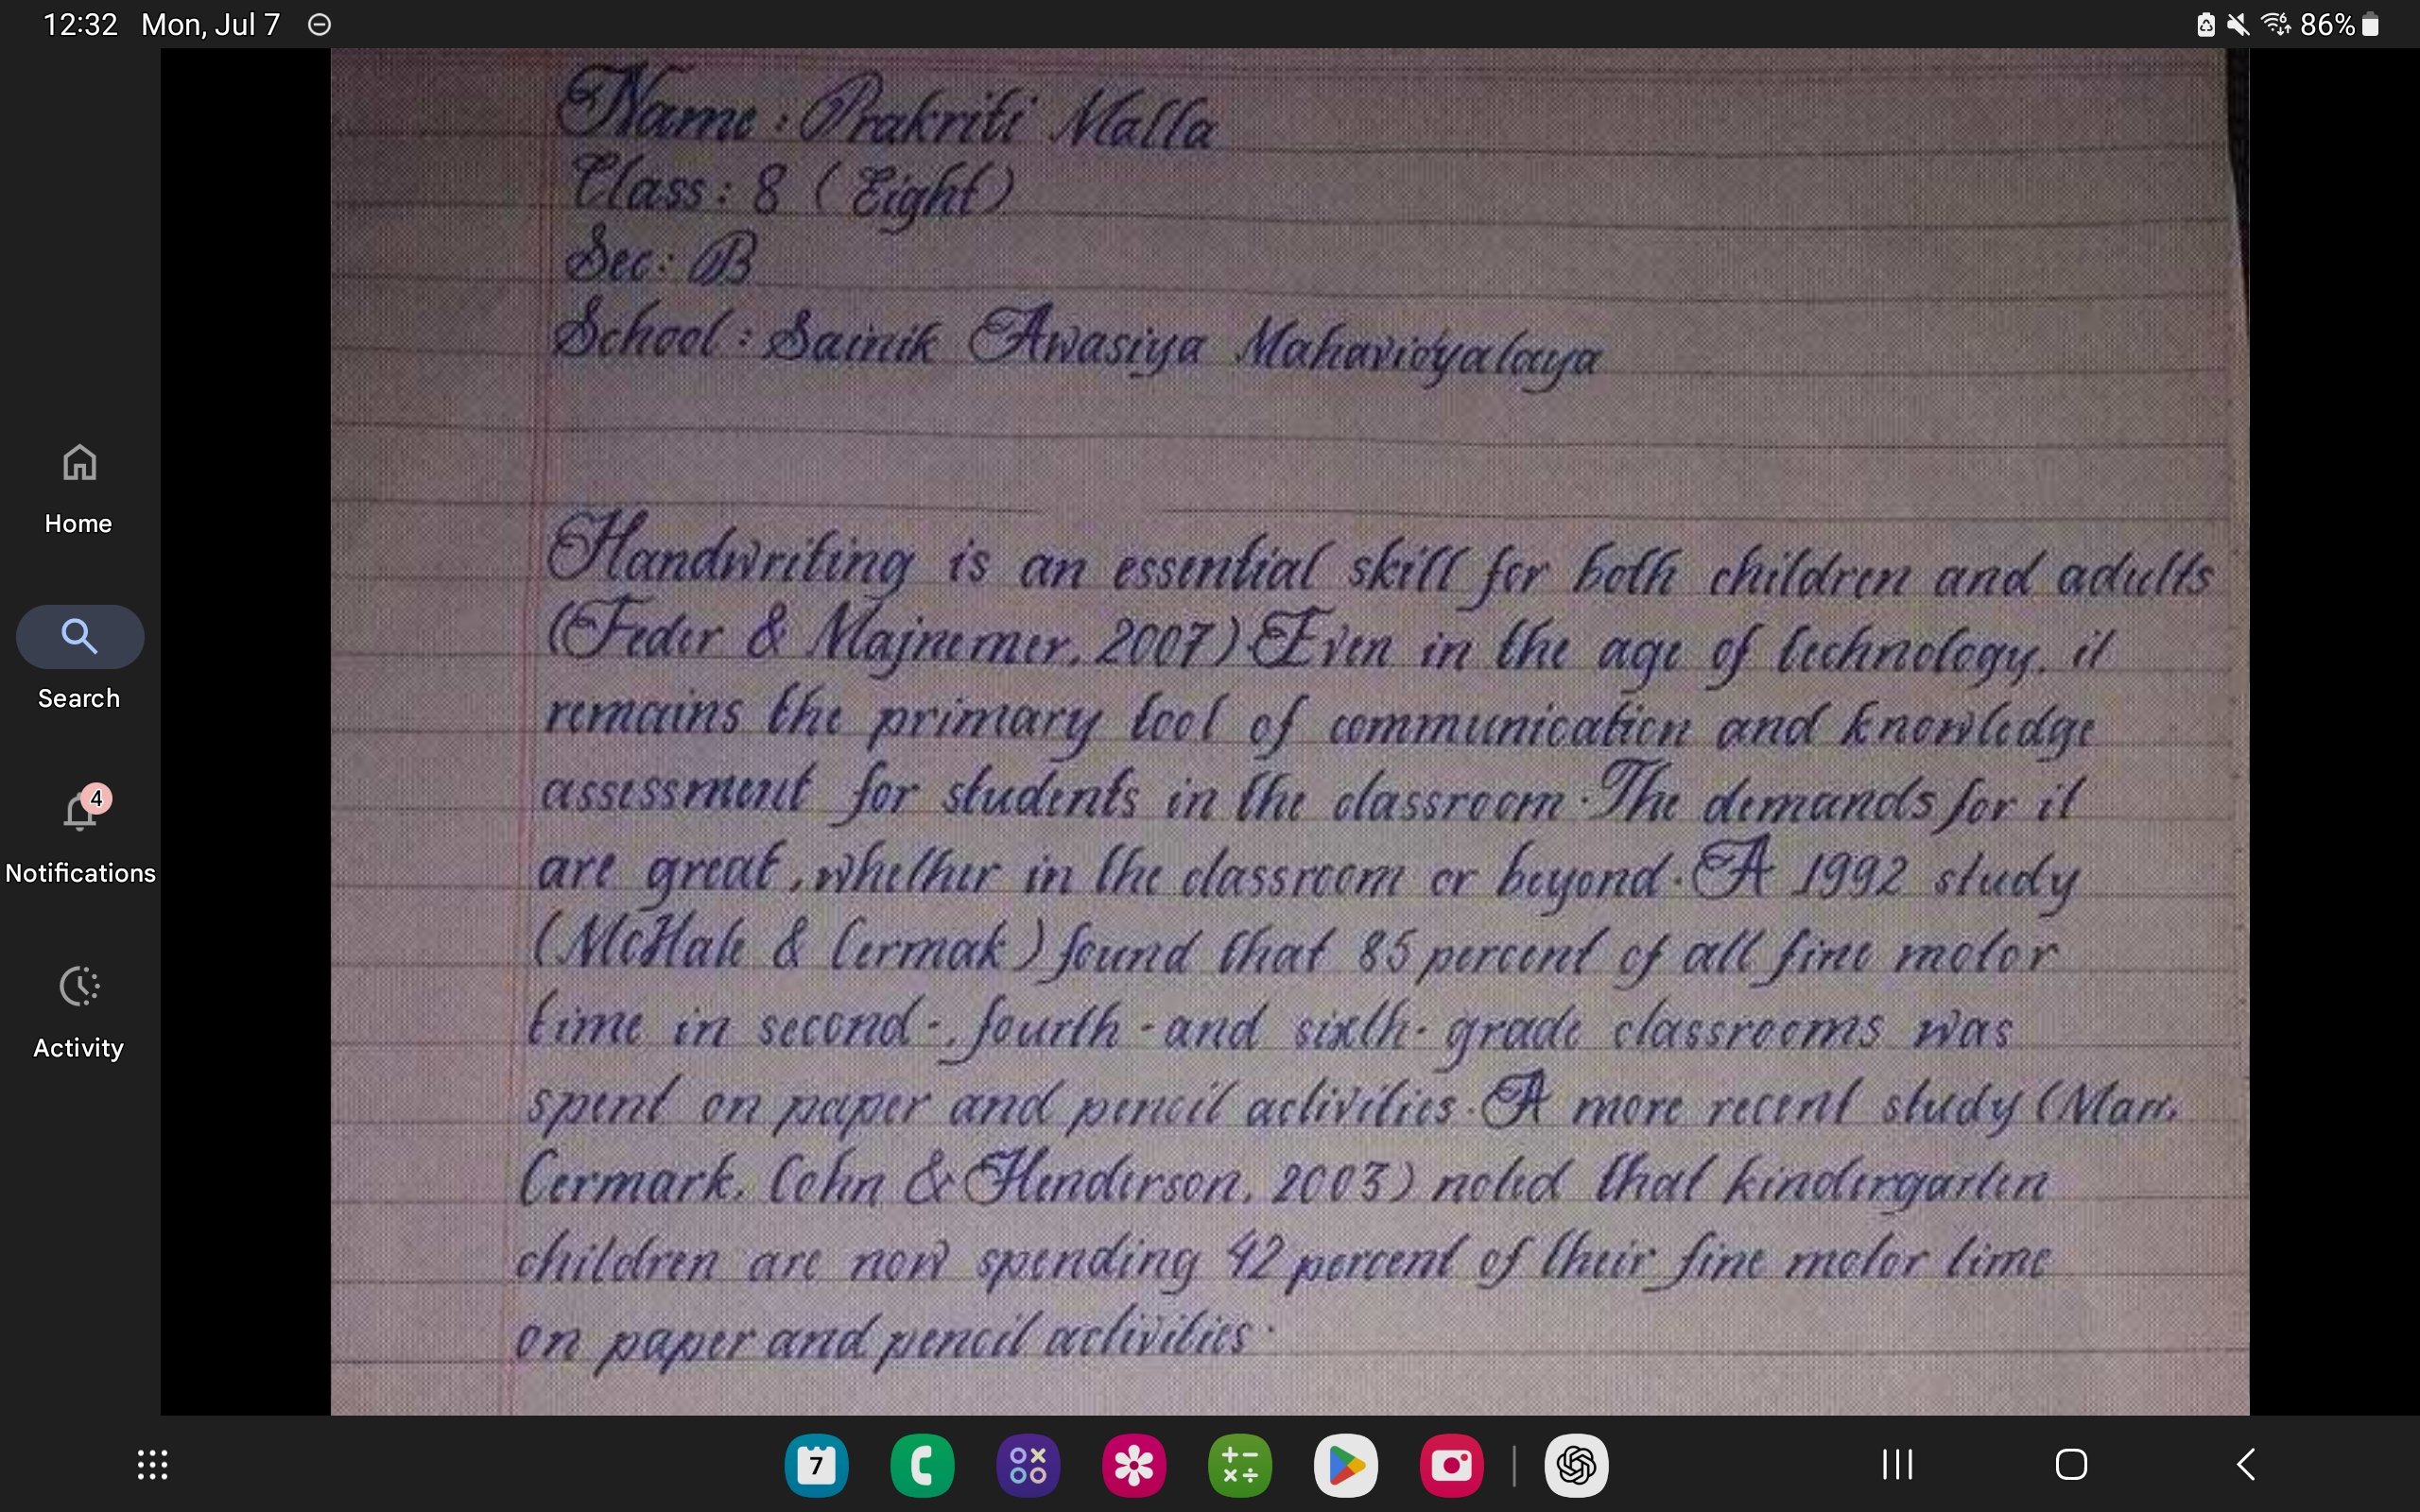 12:32 Mon, Jul 7 86%
Name : Prakriti Malla
Class : 8 ( Eight )
Sec : B
School : Sainik Awasiya Mahavidyalaya
Home
Handwriting is an essential skill for both children and adults
(Feder & Majnemer, 2007). Even in the age of technology, it
Search
remains the primary tool of communication and knowledge
assessment for students in the classroom. The demands for it
4
Notifications
are great, whether in the classroom or beyond. A 1992 study
(McHale & Cermak) found that 85 percent of all fine motor
time in second-, fourth - and sixth - grade classrooms was
Activity
spent on paper and pencil activities. A more recent study (Marr,
Cermark, Cohn & Henderson, 2003) noted that kindergarten
children are now spending 42 percent of their fine motor time
on paper and pencil activities.
7